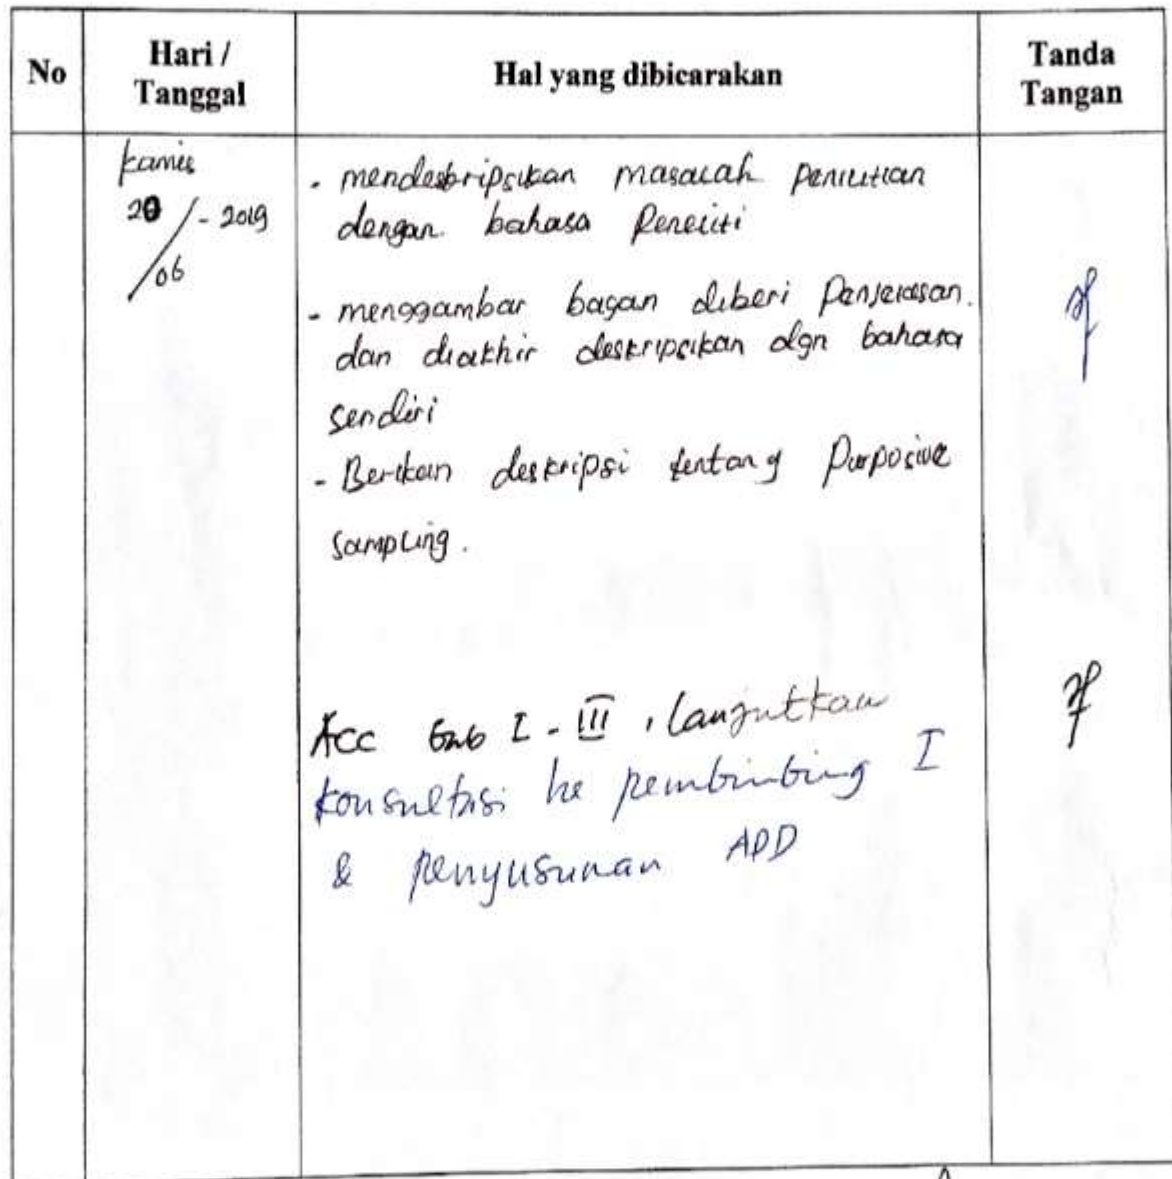 No
Hari /
Tanggal
Hal yang dibicarakan
Tanda
Tangan
Kamis
20/06 - 2019
- mendeskripsikan masalah penelitian
dengan bahasa Peneliti
- menggambar bagan diberi Penjelasan.
dan diakhir deskripsikan dgn bahasa
sendiri
- Berikan deskripsi tentang Purposive
sampling.
Acc Bab I - III, lanjutkan
konsultasi ke pembimbing I
& penyusunan APD